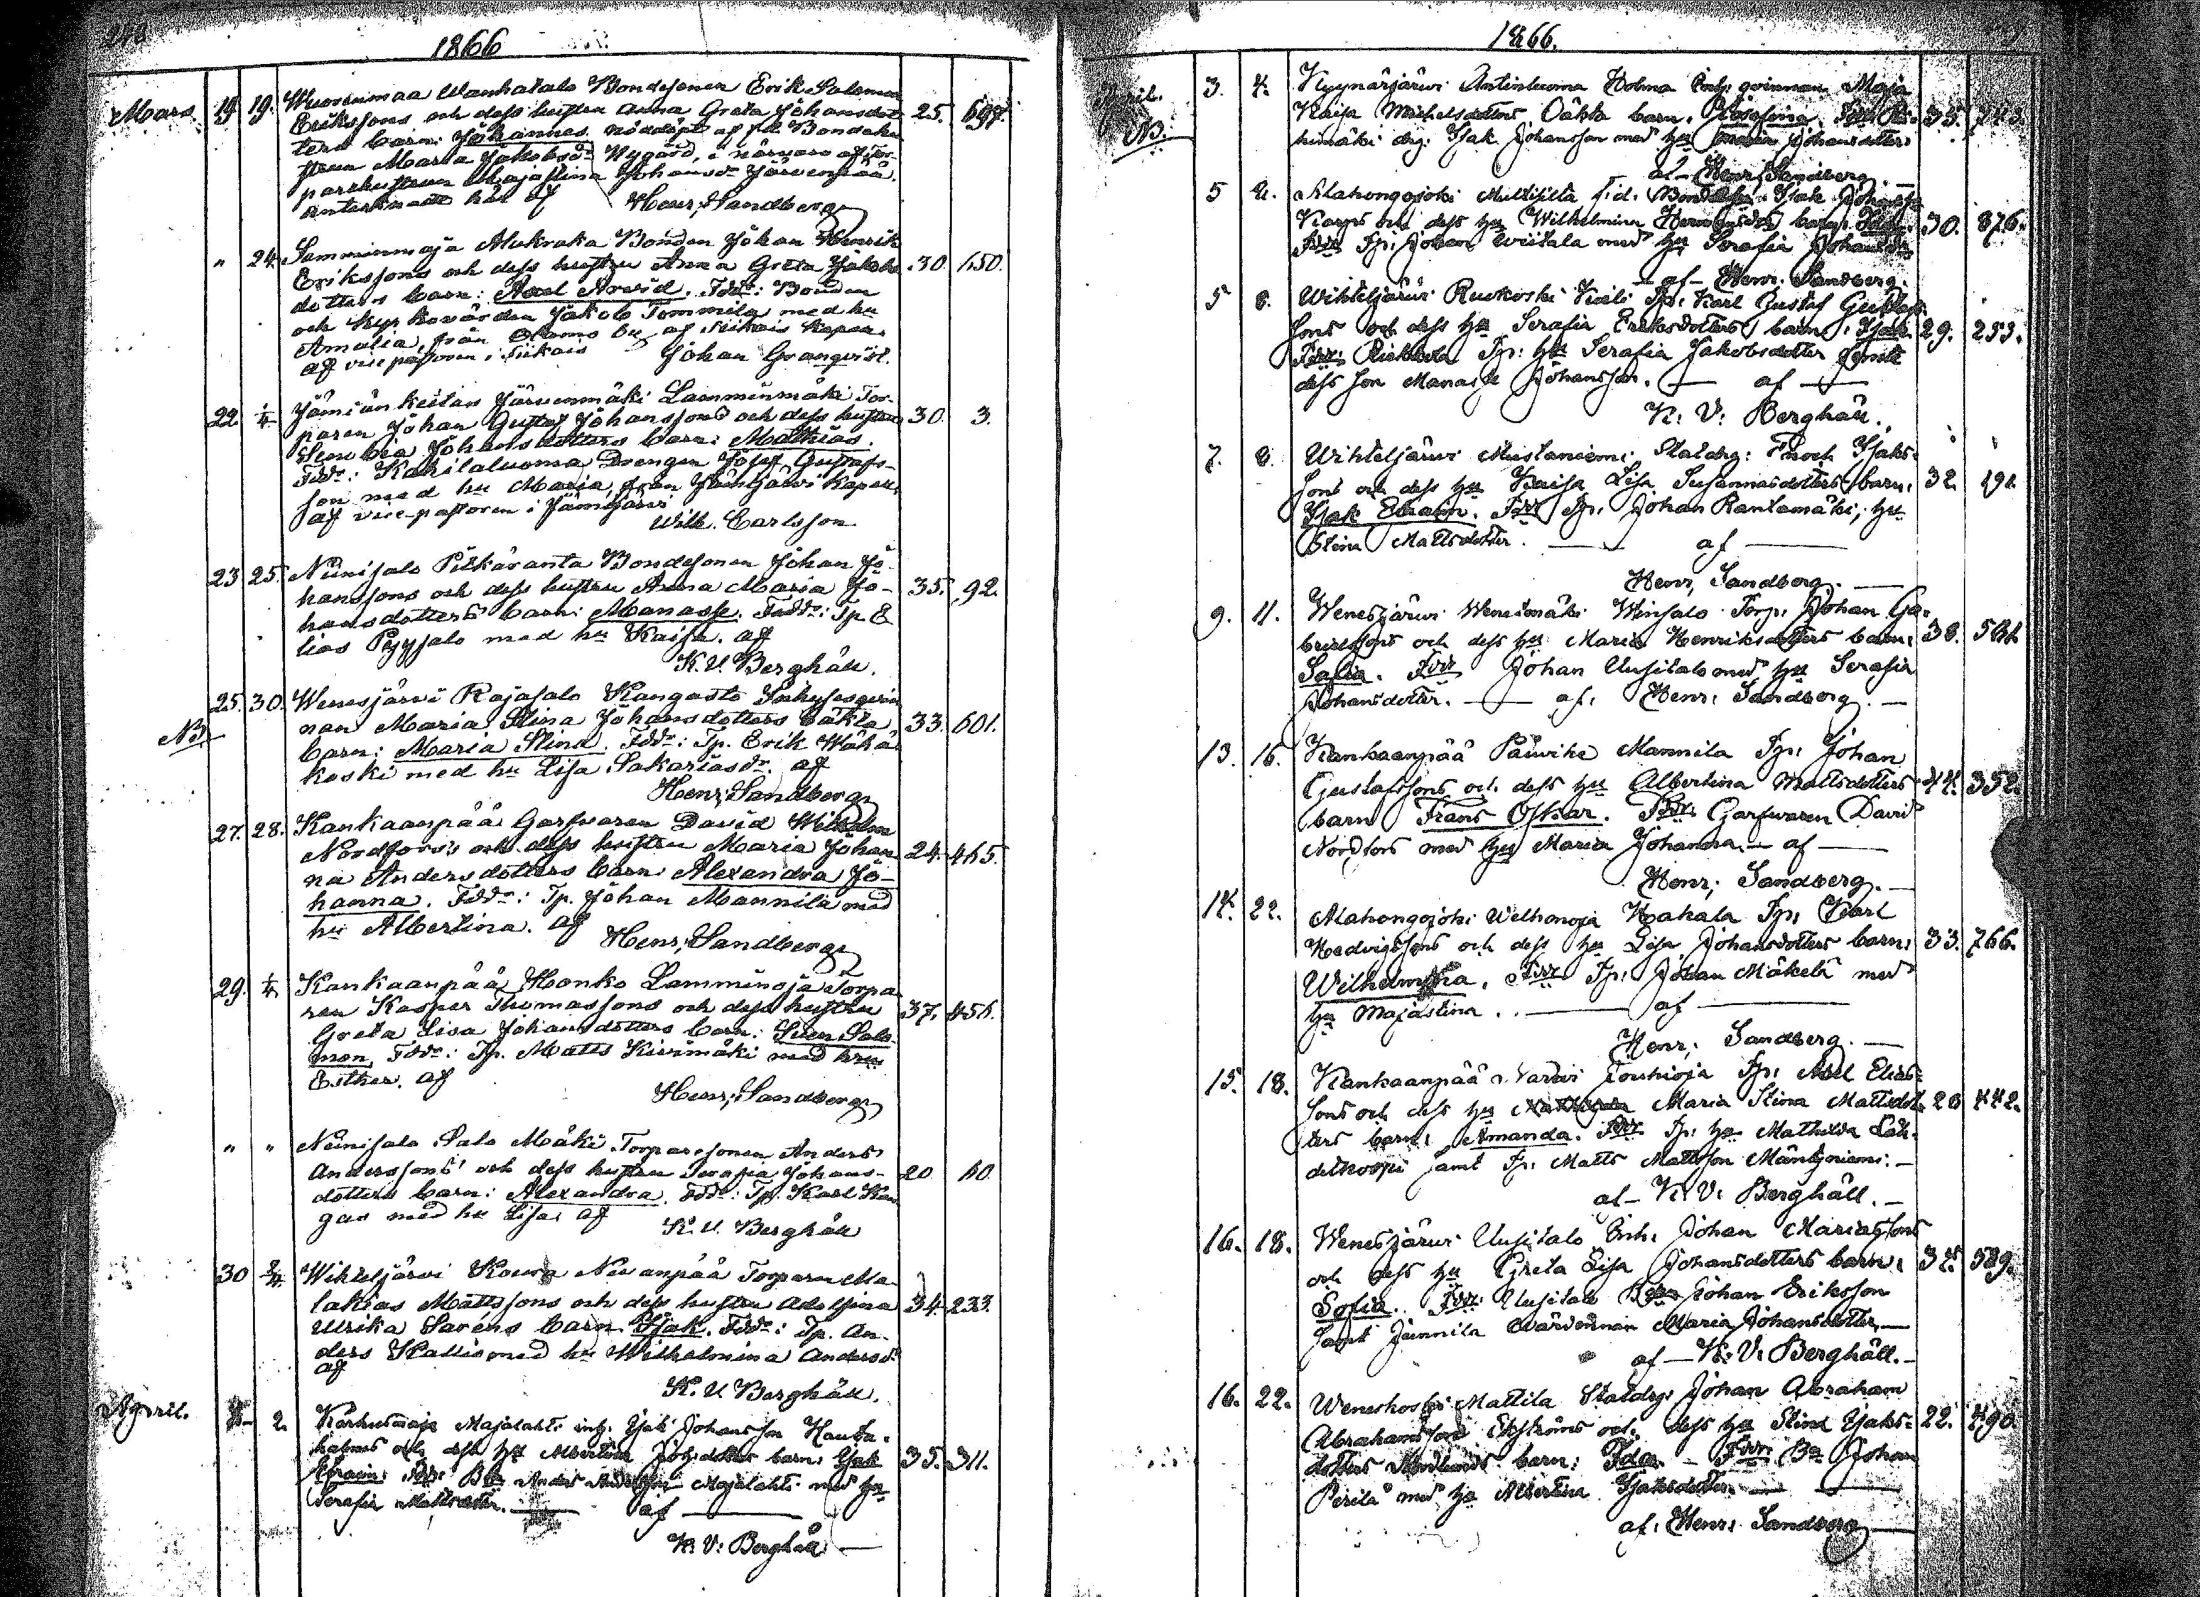 1866
Mars 19 19. Wuorenmaa Wanhatalo Bondesonen Erik Salomon
Erikssons och dess hustru Anna Greta Johansdot 25. 697.
ters barn: Johannes nöddöpt af f.d. Bondehu
strun Maria Jakobsdr Nygård, i närvaro af Tor-
parehustrun Majastina Johansdr Järvenpää.
antecknadt här af Henr; Sandberg
" 24. Samminmaja Alukraka Bonden Johan Henrik
Erikssons och dess hustru Anna Greta Jakobs 30 150.
dotters barn: Axel Arvid. Fddr: Bonden
och Kyrkovärden Jakob Tommila med hu
Amalia, från Otamo by af Siikais Kapell
af vice pastoren i Siikais Johan Granqvist.
22. 1/4 Jämiänkeitas Järvenmäki Lamminmäki Tor-
paren Johan Gustaf Johanssons och dess hustru 30. 3.
Johansdotters barn: Mathias.
Fddr: Kahilaluoma Drengen Josef Gustafs-
son med hu Maria, från Jämijärvi Kapell
af vice-pastoren i Jämijärvi
Wilh. Carlsson
23 25. Niinisalo Pitkäranta Bondesonen Johan Jo-
hanssons och dess hustru Anna Maria Jo- 35. 92.
hansdotters barn: Manasse. Fddr: Tp. E
lias Pyysalo med hu Kaisa. af
K. V. Berghäll.
25. 30. Wenesjärvi Rajasalo Kangasto Inhyseqvin
NB nan Maria Stina Johansdotters oäkta 33. 601.
barn: Maria Stina. Fddr: Tp. Erik Wähä
koski med hu Lisa Sakariasdr. af
Henr; Sandberg
27. 28. Kankaanpää Garfvaren David Wilhelm
Nordfors's och dess hustru Maria Johan 24. 465.
na Andersdotters barn: Alexandra Jo-
hanna. Fddr: Tp. Johan Mannila med
hu Albertina. af
Henr; Sandberg
29. 1/4 Kankaanpää Honko Lamminoja Torpa
ren Kasper Thomassons och dess hustru 37. 456.
Greta Lisa Johansdotters barn: Sven Salo-
mon, Fddr: Tp. Matts Kivimäki med hru
Esther. af
Henr; Sandberg
" " Niinisalo Salo Mäki Torparesonen Anders
Anderssons och dess hustru Serafia Johans- 20 60.
dotters barn: Alexandra. Fddr: Tp. Karl Kan
gas med hu Lisa. af
K. V. Berghäll
30 2/4 Wihteljärvi Koura Nevanpää Torparen Ma
lakias Mattssons och dess hustru Adolfina 34. 233.
Ulrika Saréns barn Isak. Fddr: Tp. An-
ders Kallio med hu Wilhelmina Andersdr
af
K. V. Berghäll.
April. 2. Karhusmaja Majalahti inh. Isak Johansson Hauta-
holms och dess hu Albertina Joh:dotters barn: Isak 35. 311.
Efraim. Fddr: Anders Andersson Majalahti med hu
Serafia Mattsdotter. af
K. V. Berghäll
1866.
April. 3. 4. Kyynärjärvi Antinluoma Holma Inh. qvinnan Maja
NB. Kaisa Michelsdotters Oäkta barn. Josefina. Fddr 35. 243.
himäki drg. Isak Johansson med hu Maria Johansdotter.
af Henr; Sandberg.
5 Alahongojoki Muttisilta f.d. Isak
och dess hu Wilhelmina barn. 30. 876.
Fddr Tp. Johan Wiitala med hu Serafia Johansdr
af Henr. Sandberg.
5 8. Wihteljärvi Ruokoski Tp. Karl Gustaf Gustafs-
sons och dess hu Serafia Eriksdotters barn: Isak 29. 253.
Fddr: Tp: hu Serafia Jakobsdotter samt
dess son Manasse Johansson. af
K. V. Berghäll.
7. 8. Wihteljärvi Mustaniemi Staldrg: Enoch Isaks-
sons och dess hu Kaisa Lisa Susannasdotters barn: 32. 191.
Isak Efraim. Fddr Tp. Johan Rantamäki, hu
Stina Mattsdotter. af
Henr; Sandberg.
9. 11. Wenesjärvi Wenesmäki Winsalo Torp. Johan Ga-
brielssons och dess hu Maria Henriksdotters barn: 38.
Sofia. Fddr Johan Uusitalo med hu Serafia
Johansdotter. af: Henr: Sandberg.
13. 16. Kankaanpää Päivike Mannila Tp: Johan
Gustafssons och dess hu Albertina Mattsdotters 44. 352.
barn Frans Oskar. Fddr: Garfwaren David
Nordfors med hu Maria Johanna. af
Henr; Sandberg.
14. 22. Alahongojoki Welhonoja Kakala Tp: Karl
Hedvigssons och dess hu Lisa Johansdotters barn: 33. 766.
Wilhelmina. Fddr Tp: Johan Mäkelä med
hu Majastina. af
Henr; Sandberg.
15. 18. Kankaanpää Narvi Touhioja Tp: Axel Elias-
sons och dess hu Maria Stina Mattsdot- 28 442.
ters barn: Amanda. Fddr Tp: hu Mathilda Läh-
dekorpi samt Tp: Matts Mattsson Mäntyniemi.
af K. V. Berghäll.
16. 18. Wenesjärvi Uusitalo Inh. Johan Mariassons
och dess hu Greta Lisa Johansdotters barn: 32. 589.
Sofia. Fddr: Uusitalo Johan Eriksson
samt Jannila Wärdinnan Maria Johansdotter.
af K. V. Berghäll.
16. 22. Weneskoski Mattila Staldrg. Johan Abraham
Abrahamssons Ekströms och dess hu Stina Isaks- 22. 490.
dotters barn: Ida. Fddr: Bn Johan
Perilä med hu Albertina Isaksdotter
af: Henr: Sandberg